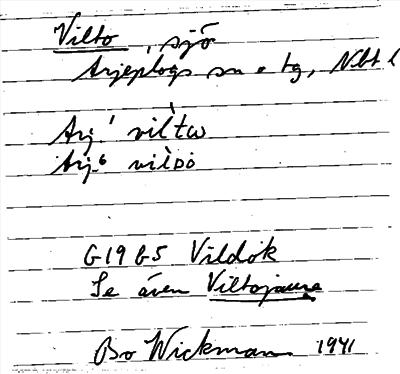 Vilto, sjö
Arjeplogs sn o tg, Nbt l
Arj.¹ vil̀tω
Arj.⁶ vilDo
G19 G5 Vildok
Se även Viltojaure
Bo Wickman 1941